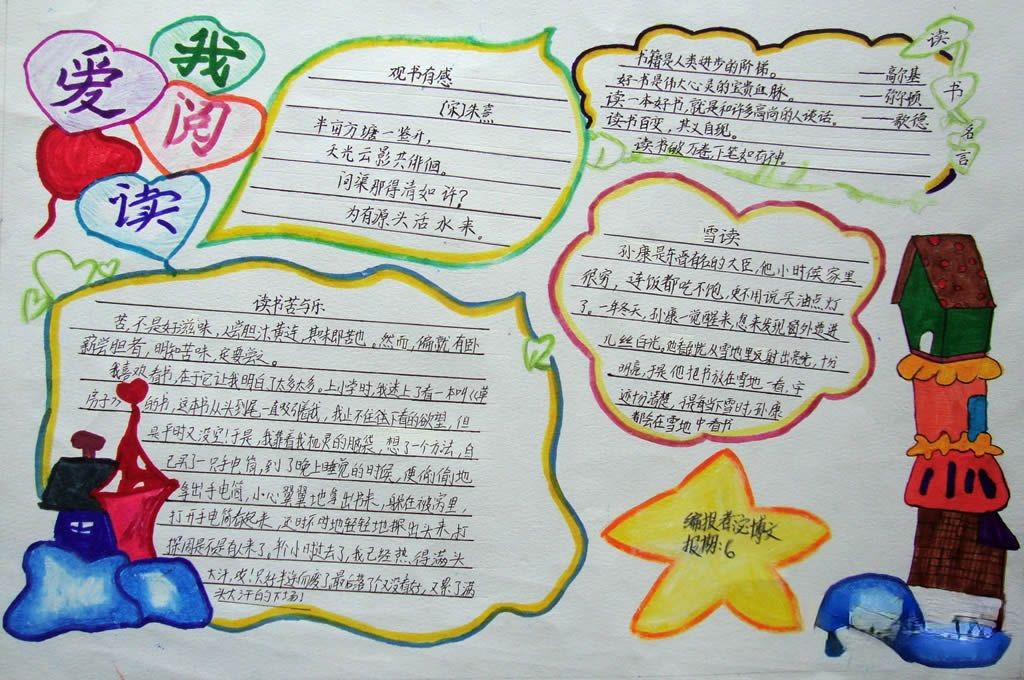 我爱阅读
观书有感
(宋)朱熹
半亩方塘一鉴开，
天光云影共徘徊。
问渠那得清如许？
为有源头活水来。
读书名言
书籍是人类进步的阶梯。 ——高尔基
好书是伟大心灵的宝贵血脉。 ——弥尔顿
读一本好书，就是和许多高尚的人谈话。 ——歌德
读书百变，其义自现。
读书破万卷，下笔如有神。
雪读
孙康是东晋有名的大臣，他小时侯家里
很穷，连饭都吃不饱，更不用说买油点灯
了。一年冬天，孙康一觉醒来，忽来发现窗外透进
几丝白光。他看
从雪地里反射出亮光，十分
明亮，于是他把书放在雪地一看，字
还十分清楚，
当下雪时，孙康
都会在雪地中看书
读书苦与乐
苦，不是好滋味，人尝胆汁黄连，其味即苦也。然而，偏就有卧
薪尝胆者，明知苦味，还要尝之。
我喜欢看书，在于它让我明白了太多太多。上小学时，我迷上了看一本叫《草
房子》的书，这本书从头到尾一直吸引着我，我止不住往下看的欲望，但
是平时又没空！于是，我靠着我机灵的脑袋，想了一个方法，自
己买了一只手电筒，到了晚上睡觉的时候，便偷偷地
拿出手电筒，小心翼翼地拿出书来，躲在被窝里，
打开手电筒看起来，还时不时地轻轻地探出头来，打
探周是不是有人来了，半个小时过去了，我已经热得满头
大汗，
头大汗的下场！
编报者
博文
报期：6